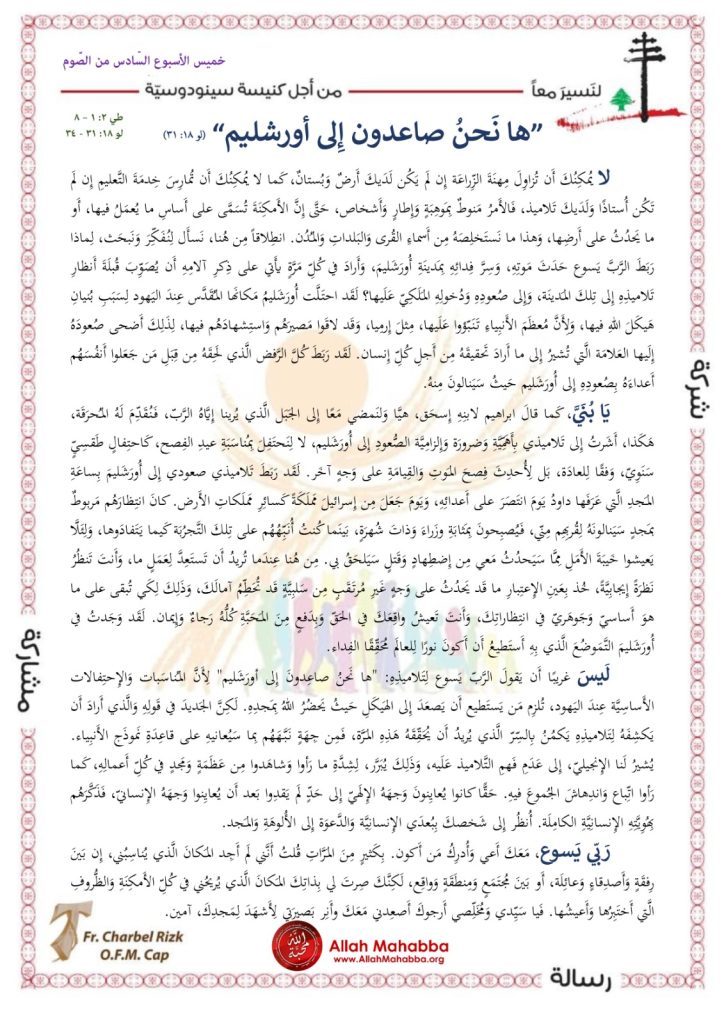 خميس الأسبوع السّادس من الصّوم
لنَسيرَ معاً
من أجل كنيسة سينودوسيّة
طي ٢: ١ - ٨
لو ١٨: ٣١ - ٣٤
”ها نَحنُ صاعدون إِلى أورشليم“ (لو ١٨: ٣١)
لا يُمكِنُكَ أَن تُزاوِلَ مِهنَةَ الزِّراعَة إِن لَم يَكُن لَدَيكَ أَرضٌ وَبُستانٌ، كَما لا يُمكِنُكَ أَن تُمارِسَ خِدمَةَ التَّعليمِ إِن لَم
تَكُن أُستاذًا وَلَدَيكَ تَلاميذ، فَالأَمرُ مَنوطٌ بِمَوهِبَةٍ وَإِطارٍ وَأَشخاص، حَتَّى إِنَّ الأَمكِنَةَ تُسَمَّى على أَساسِ ما يُعمَلُ فيها، أَو
ما يَحدُثُ على أَرضِها، وَهذا ما نَستَخلِصُهُ مِن أَسماءِ القُرى وَالبَلداتِ وَالمُدُن. انطِلاقاً مِن هُنا، نَسأَل لِنُفَكِّرَ وَنَبحَث، لِماذا
رَبَطَ الرَّبُّ يَسوع حَدَثَ مَوتِهِ، وَسِرَّ فِدائِهِ بِمَدينَةِ أُورَشَليم، وَأَرادَ في كُلِّ مَرَّةٍ يأتي على ذِكرِ آلامِهِ أَن يُصَوِّبَ قُبلَةَ أَنظارِ
تَلاميذِهِ إِلى تِلكَ المَدينَة، وَإِلى صُعودِهِ وَدُخولِهِ المَلَكيِّ عَلَيها؟ لَقَد احتَلَّت أُورَشَليمُ مَكانَها المُقَدَّس عِندَ اليَهود لِسَبَبِ بُنيانِ
هَيكَلِ اللهِ فيها، وَلِأَنَّ مُعظَمَ الأَنبِياءِ تَنَبَّؤوا عَلَيها، مِثلَ إِرميا، وَقَد لاقَوا مَصيرَهُم وَاستِشهادَهُم فيها، لِذلِكَ أَضحى صُعودُهُ
إِلَيها العَلامَة الَّتي تُشيرُ إِلى ما أَرادَ تَحقيقَهُ مِن أَجلِ كُلِّ إِنسان. لَقَد رَبَطَ كُلَّ الرَّفضِ الَّذي لَحِقَهُ مِن قِبَلِ مَن جَعَلوا أَنفُسَهُم
أَعداءَهُ بِصُعودِهِ إِلى أُورَشَليم حَيثُ سَيَنالونَ مِنهُ.
يَا بُنَيَّ، كَما قالَ ابراهيم لابنِهِ إِسحَق، هَيَّا وَلنَمضي مَعًا إِلى الجَبَل الَّذي يُرينا إِيَّاهُ الرَّبّ، فَنُقَدِّمَ لَهُ المُحرَقَة،
هَكَذا، أَشَرتُ إِلى تَلاميذي بِأَهَمِّيَّةِ وَضَرورَة وَإِلزامِيَّة الصُّعودِ إِلى أُورَشَليم، لا لِنَحتَفِلَ بِمُناسَبَةِ عيدِ الفِصح، كَاحتِفالٍ طَقسِيٍّ
سَنَوِيّ، وَفقًا لِلعادَة، بَل لِأُحدِثَ فِصحَ المَوتِ وَالقِيامَةِ على وَجهٍ آخَر. لَقَد رَبَطَ تَلاميذي صعودي إِلى أُورَشَليمَ بِساعَةِ
المَجدِ الَّتي عَرَفَها داودُ يَومَ انتَصَرَ على أَعدائِهِ، وَيَومَ جَعَلَ مِن إِسرائيلَ مَملَكَةً كَسائِرِ مَملَكاتِ الأَرض. كانَ انتِظارُهُم مَربوطٌ
بِمَجدٍ سَيَنالونَهُ لِقُربِهِم مِنِّي، فَيُصبِحونَ بِمَثابَةِ وُزَراءَ وَذاتَ شُهرَة، بَينَما كُنتُ أُنَبِّهُهُم على تِلكَ التَّجرِبَة كَيما يَتَفادَوها، وَلِئَلَّا
يَعيشوا خَيبَةَ الأَمَلِ مِمَّا سَيَحدُثُ مَعي مِن إِضطِهادٍ وَقَتلٍ سَيَلحَقُ بي. مِن هُنا عِندَما تُريدُ أَن تَستَعِدَّ لِعَمَلٍ ما، وَأَنتَ تَنظُرُ
نَظرَةً إِيجابِيَّةً، خُذ بِعَينِ الإِعتِبارِ ما قَد يَحدُثُ على وَجهٍ غَيرِ مُرتَقَبٍ مِن سَلبِيَّةٍ قَد تُحَطِّمُ آمالَكَ، وَذَلِكَ لِكَي تُبقى على ما
هوَ أَساسيّ وَجَوهَريّ في انتِظاراتِكَ، وَأَنتَ تَعيشُ واقِعَكَ في الحَقّ وَبِدَفعٍ مِنَ المَحَبَّةِ كُلُّهُ رَجاءٌ وَإِيمان. لَقَد وَجَدتُ في
أُورَشَليمَ التَّمَوضُعَ الَّذي بِهِ أَستَطيعُ أَن أَكونَ نورًا لِلعالَمِ مُحَقِّقًا الفِداء.
لَيسَ غَريبًا أَن يَقولَ الرَّبّ يَسوع لِتَلاميذِهِ: "ها نَحنُ صاعِدونَ إِلى أورَشليم" لِأَنَّ المُناسَباتِ وَالإِحتِفالات
الأَساسِيَّة عِندَ اليَهود، تُلزِم مَن يَستَطيع أَن يَصعَدَ إِلى الهَيكَلِ حَيثُ يَحضُرُ اللهُ بِمَجدِهِ. لَكِنَّ الجَديدَ في قَولِهِ وَالَّذي أَرادَ أَن
يَكشِفَهُ لِتَلاميذِهِ يَكمُنُ بِالسِّرّ الَّذي يُريدُ أَن يُحَقِّقَهُ هَذِهِ المَرَّة، فَمِن جِهَةٍ نَبَّهَهُم بِما سَيُعانيهِ على قاعِدَةِ نَموذَجِ الأَنبِياء.
يُشيرُ لَنا الإِنجيليّ، إِلى عَدَمِ فَهمِ التَّلاميذ عَلَيه، وَذَلِكَ يُبَرَّر، لِشِدَّةِ ما رَأَوا وَشاهَدوا مِن عَظَمَةٍ وَمَجدٍ في كُلِّ أَعمالِهِ، كَما
رَأَوا اتِّباع وَاندِهاشَ الجُموعَ فيهِ. حَقًّا كانوا يُعايِنونَ وَجهَهُ الإِلَهِيّ إِلى حَدٍّ لَم يَقدِروا بَعد أَن يُعايِنوا وَجهَهُ الإِنسانيّ، فَذَكَّرَهُم
بِهُوِيَّتِهِ الإِنسانِيَّةِ الكامِلَة. أُنظُر إِلى شَخصِكَ بِبُعدَيِ الإِنسانِيَّة وَالدَّعوَة إِلى الأُلوهَةِ وَالمَجد.
رَبّي يَسوع، مَعَكَ أَعي وَأُدرِكُ مَن أَكون. بِكَثيرٍ مِنَ المَرَّاتِ قُلتُ أَنَّني لَم أَجِد المَكانَ الَّذي يُناسِبُني، إِن بَينَ
رِفقَةٍ وَأَصدِقاءٍ وَعائِلَة، أَو بَينَ مُجتَمَعٍ وَمِنطَقَةٍ وَواقِع، لَكِنَّكَ صِرتَ لي بِذاتِكَ المَكانَ الَّذي يُريحُني في كُلِّ الأَمكِنَةِ وَالظُّروفِ
الَّتي أَختَبِرُها وَأَعيشُها. فَيا سَيِّدي وَمُخَلِّصي أَرجوكَ أَصعِدني مَعَكَ وَأَنِر بَصيرَتي لِأَشهَدَ لِمَجدِكَ، آمين.
شركة
مشاركة
رسالة
Fr. Charbel Rizk
O.F.M. Cap
الله محبة
Allah Mahabba
www.AllahMahabba.org